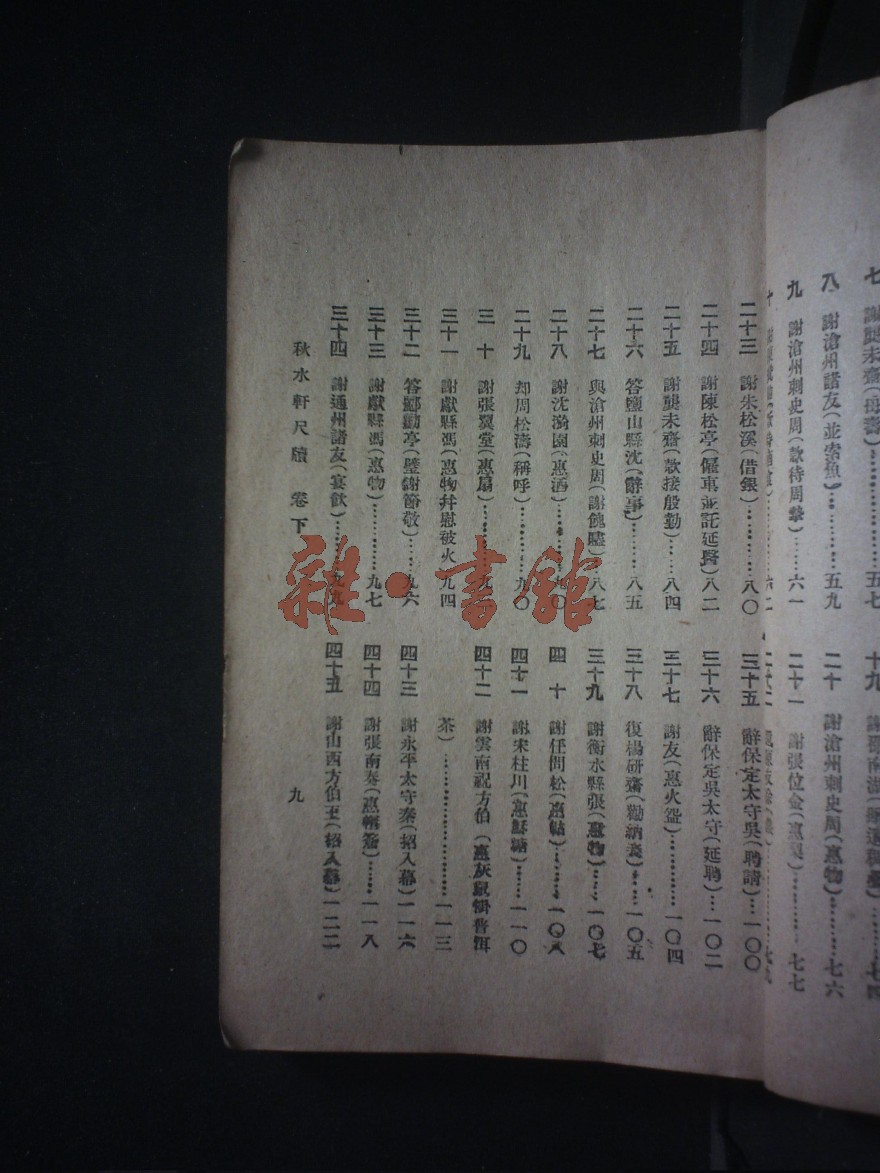 八 謝滄州諸友(並索魚)……五九
九 謝滄州刺史周(款待周摯)……六一
二十 謝滄州刺史周(惠物)……七六
二十一 謝張位金(惠梨)……七七
二十三 謝朱松溪(借銀)……八〇
二十四 謝陳松亭(僱車並託延醫)八二
二十五 謝龔未齋(款接殷勤)……八四
二十六 答鹽山縣沈(辭事)……八五
二十七 與滄州刺史周(謝餽贐)八七
二十八 謝沈瀹園(惠酒)……九〇
二十九 却周松濤(稱呼)……九〇
三十 謝張翼堂(惠扇)……九
三十一 謝獻縣馮(惠物幷慰被火)九四
三十二 答鄒勸亭(璧謝節敬)……九六
三十三 謝獻縣馮(惠物)……九七
三十四 謝通州諸友(宴飲)……九九
三十五 辭保定太守吳(聘請)…一〇〇
三十六 辭保定吳太守(延聘)…一〇二
三十七 謝友(惠火盤)……一〇四
三十八 復楊研齋(勸納妾)……一〇五
三十九 謝衡水縣張(惠物)……一〇七
四十 謝任問松(惠帖)……一〇八
四十一 謝宋桂川(惠酥糖)……一一〇
四十二 謝雲南祝方伯(惠灰鼠褂普洱
茶)……一一三
四十三 謝永平太守秦(招入幕)一一六
四十四 謝張南秦(惠)……一一八
四十五 謝山西方伯王(招入幕)一二二
秋水軒尺牘 卷下
九
雜·書館